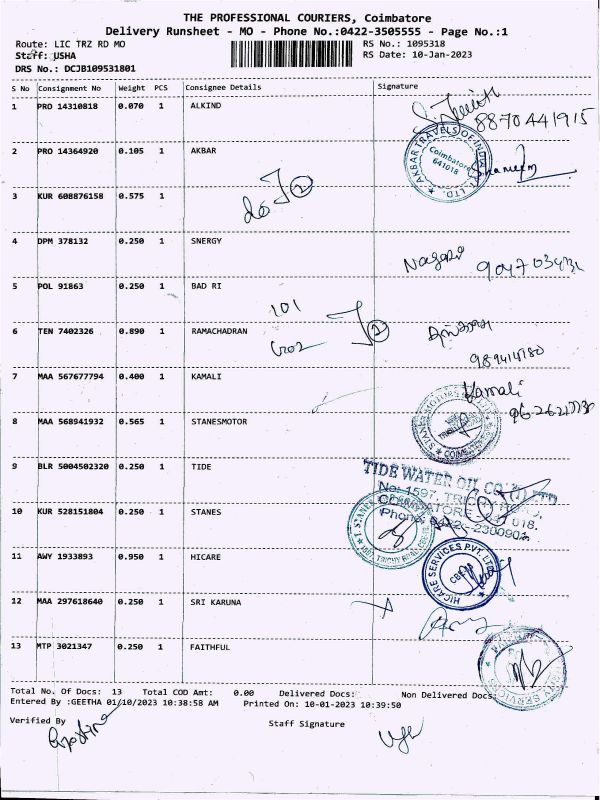 THE PROFESSIONAL COURIERS, Coimbatore
Delivery Runsheet - MO - Phone No.:0422-3505555 - Page No.:1
Route: LIC TRZ RD MO RS No.: 1095318
Staff: USHA RS Date: 10-Jan-2023
DRS No.: DCJB109531801
S No Consignment No Weight PCS Consignee Details Signature
1 PRO 14310818 0.070 1 ALKIND
8870441915
2 PRO 14364920 0.105 1 AKBAR
AKBAR TRAVELS OF INDIA PVT. LTD.
Coimbatore
641018
3 KUR 608876158 0.575 1
4 DPM 378132 0.250 1 SNERGY
5 POL 91863 0.250 1 BAD RI
101
6 TEN 7402326 0.890 1 RAMACHADRAN
7 MAA 567677794 0.400 1 KAMALI
Kamali
8 MAA 568941932 0.565 1 STANESMOTOR
9 BLR 5004502320 0.250 1 TIDE
TIDE WATER OIL CO. (I) LTD
No: 1597, TRICHY ROAD,
COIMBATORE - 641 018.
Phone: 0422-2300902
10 KUR 528151804 0.250 1 STANES
11 AWY 1933893 0.950 1 HICARE
HICARE SERVICES PVT. LTD
CBE
12 MAA 297618640 0.250 1 SRI KARUNA
13 MTP 3021347 0.250 1 FAITHFUL
Total No. Of Docs: 13 Total COD Amt: 0.00 Delivered Docs: Non Delivered Docs:
Entered By :GEETHA 01/10/2023 10:38:58 AM Printed On: 10-01-2023 10:39:50
Verified By Staff Signature